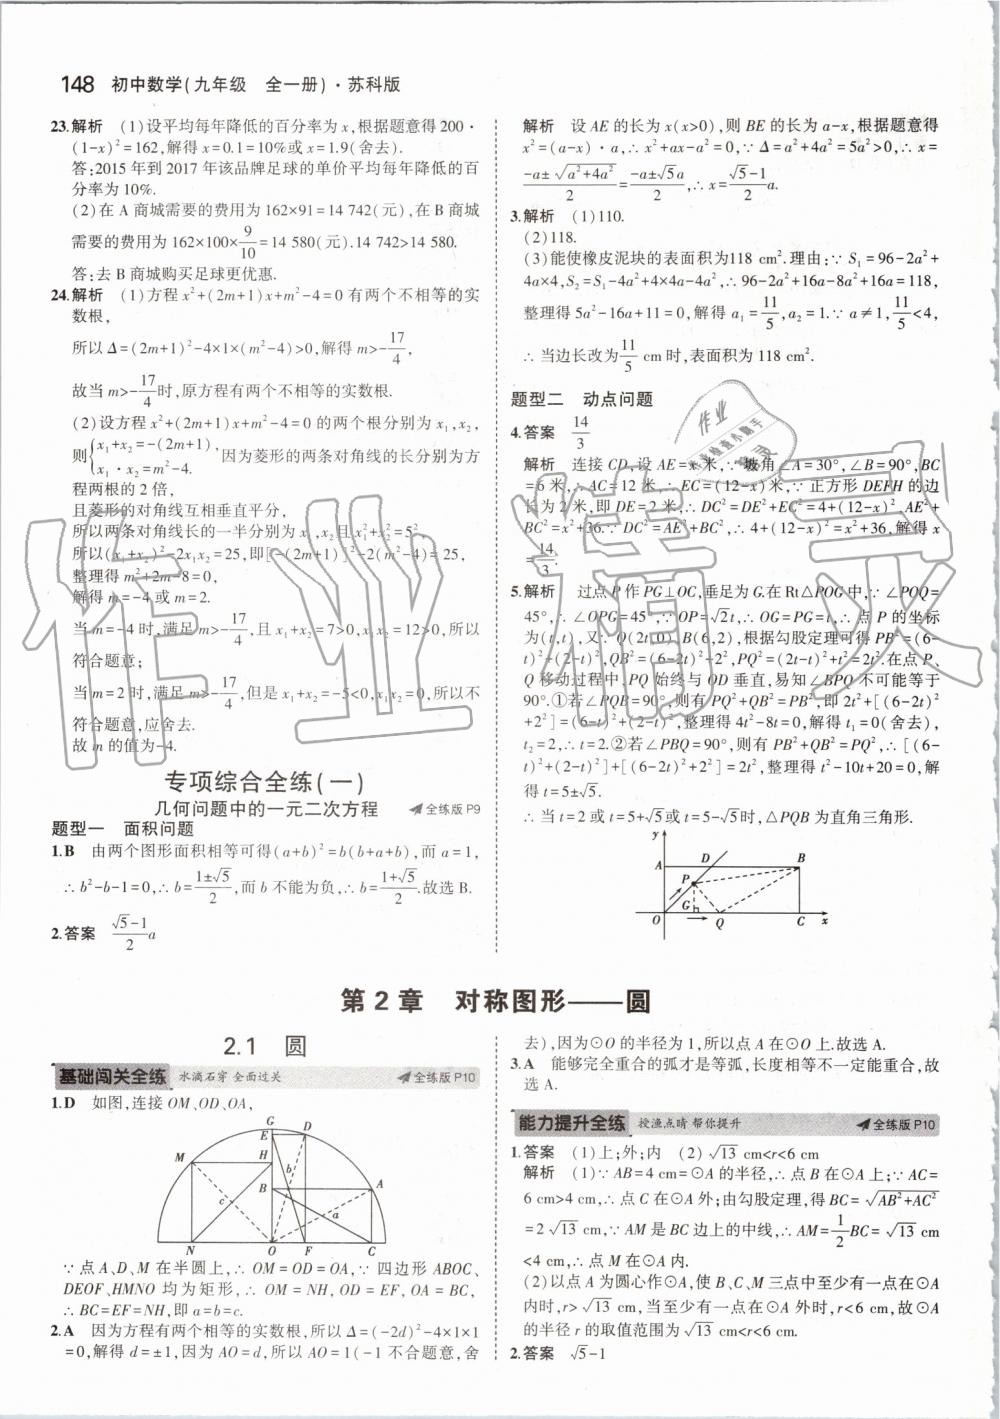 148 初中数学(九年级　全一册)·苏科版
23.解析　(1)设平均每年降低的百分率为x,根据题意得200·
(1-x)²=162,解得x=0.1=10%或x=1.9(舍去).
答:2015年到2017年该品牌足球的单价平均每年降低的百
分率为10%.
(2)在A商城需要的费用为162×91=14 742(元),在B商城
需要的费用为162×100×9/10=14 580(元).14 742>14 580.
答:去B商城购买足球更优惠.
24.解析　(1)方程x²+(2m+1)x+m²-4=0有两个不相等的实
数根,
所以Δ=(2m+1)²-4×1×(m²-4)>0,解得m>-17/4,
故当m>-17/4时,原方程有两个不相等的实数根.
(2)设方程x²+(2m+1)x+m²-4=0的两个根分别为x₁,x₂,
则{x₁+x₂=-(2m+1), x₁·x₂=m²-4. 因为菱形的两条对角线的长分别为方
程两根的2倍,
且菱形的对角线互相垂直平分,
所以两条对角线长的一半分别为x₁,x₂且x₁²+x₂²=5²,
所以(x₁+x₂)²-2x₁x₂=25,即[-(2m+1)]²-2(m²-4)=25,
整理得m²+2m-8=0,
解得m=-4或m=2.
当m=-4时,满足m>-17/4,且x₁+x₂=7>0,x₁x₂=12>0,所以
符合题意;
当m=2时,满足m>-17/4,但是x₁+x₂=-5<0,所以不
符合题意,应舍去.
故m的值为-4.
专项综合全练(一)
几何问题中的一元二次方程　全练版P9
题型一　面积问题
1.B　由两个图形面积相等可得(a+b)²=b(b+a+b),而a=1,
∴b²-b-1=0,∴b=(1±√5)/2,而b不能为负,∴b=(1+√5)/2.故选B.
2.答案　(√5-1)/2 a
解析　设AE的长为x(x>0),则BE的长为a-x,根据题意得
x²=(a-x)·a,∴x²+ax-a²=0,∵Δ=a²+4a²=5a²>0,∴x=
(-a±√(a²+4a²))/2=(-a±√5a)/2,∴x=(√5-1)/2 a.
3.解析　(1)110.
(2)118.
(3)能使橡皮泥块的表面积为118 cm².理由:∵S₁=96-2a²+
4a×4,S₂=S₁-4a²+4×4a-4a²,∴96-2a²+16a-8a²+16a=118,
整理得5a²-16a+11=0,解得a₁=11/5,a₂=1.∵a≠1,11/5<4,
∴当边长改为11/5 cm时,表面积为118 cm².
题型二　动点问题
4.答案　14/3
解析　连接CD,设AE=x米,∵坡角∠A=30°,∠B=90°,BC
=6米,∴AC=12米,∴EC=(12-x)米,∵正方形DEFH的边
长为2米,即DE=2米,∴DC²=DE²+EC²=4+(12-x)²,AE²+
BC²=x²+36,∵DC²=AE²+BC²,∴4+(12-x)²=x²+36,解得x
=14/3.
5.解析　过点P作PG⊥OC,垂足为G.在Rt△POG中,∵∠POQ=
45°,∴∠OPG=45°,∵OP=√2t,∴OG=PG=t,∴点P的坐标
为(t,t),又∵Q(2t,0),B(6,2),根据勾股定理可得PB²=(6-
t)²+(2-t)²,QB²=(6-2t)²+2²,PQ²=(2t-t)²+t²=2t².在点P、
Q移动过程中,PQ始终与OD垂直,易知∠BPQ不可能等于
90°.①若∠PQB=90°,则有PQ²+QB²=PB²,即2t²+[(6-2t)²
+2²]=(6-t)²+(2-t)²,整理得4t²-8t=0,解得t₁=0(舍去),
t₂=2,∴t=2.②若∠PBQ=90°,则有PB²+QB²=PQ²,∴[(6-
t)²+(2-t)²]+[(6-2t)²+2²]=2t²,整理得t²-10t+20=0,解
得t=5±√5.
∴当t=2或t=5+√5或t=5-√5时,△PQB为直角三角形.
y
A D B
P
G
O Q C x
第2章　对称图形——圆
2.1　圆
基础闯关全练　水滴石穿 全面过关　全练版P10
1.D　如图,连接OM、OD、OA,
G
E D
M H
b
B A
c
a
N O F C
∵点A、D、M在半圆上,∴OM=OD=OA,∵四边形ABOC、
DEOF、HMNO均为矩形,∴OM=NH,OD=EF,OA=BC,
∴BC=EF=NH,即a=b=c.
2.A　因为方程有两个相等的实数根,所以Δ=(-2d)²-4×1×1
=0,解得d=±1,因为AO=d,所以AO=1(-1不合题意,舍
去),因为⊙O的半径为1,所以点A在⊙O上.故选A.
3.A　能够完全重合的弧才是等弧,长度相等不一定能重合.故
选A.
能力提升全练　授渔点睛 帮你提升　全练版P10
1.答案　(1)上;外;内　(2)√13 cm<r<6 cm
解析　(1)∵AB=4 cm=⊙A的半径,∴点B在⊙A上;∵AC=
6 cm>4 cm,∴点C在⊙A外;由勾股定理,得BC=√(AB²+AC²)
=2√13 cm,∵AM是BC边上的中线,∴AM=1/2BC=√13 cm
<4 cm,∴点M在⊙A内.
(2)以点A为圆心作⊙A,使B、C、M三点中至少有一点在⊙A
内时,r>√13 cm,当至少有一点在⊙A外时,r<6 cm,故⊙A
的半径r的取值范围为√13 cm<r<6 cm.
2.答案　√5-1
作业精灵